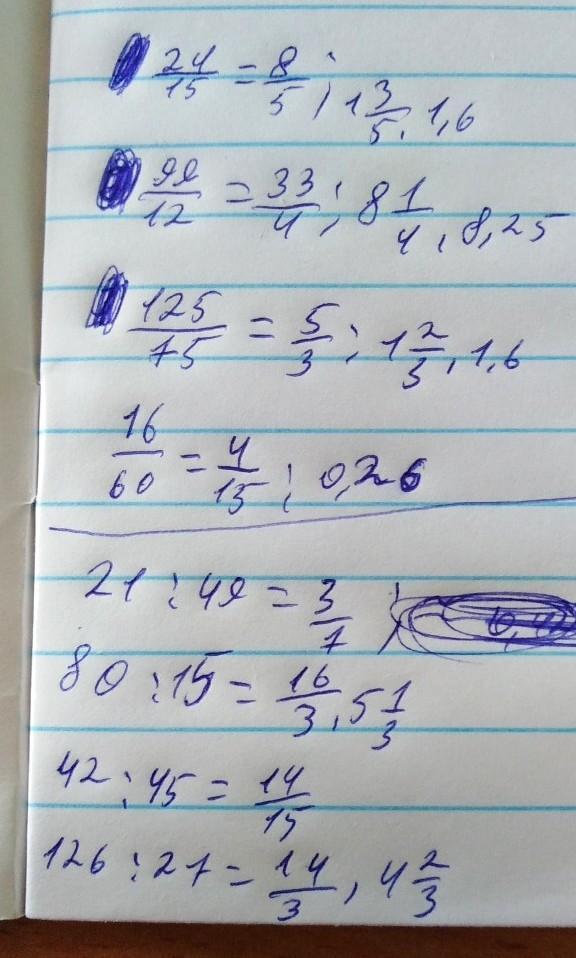 24/15 = 8/5 ; 1 3/5, 1,6
99/12 = 33/4 ; 8 1/4, 8,25
125/75 = 5/3 ; 1 2/3, 1,6
16/60 = 4/15 ; 0,26
21 : 49 = 3/7 ;
80 : 15 = 16/3, 5 1/3
42 : 45 = 14/15
126 : 27 = 14/3, 4 2/3